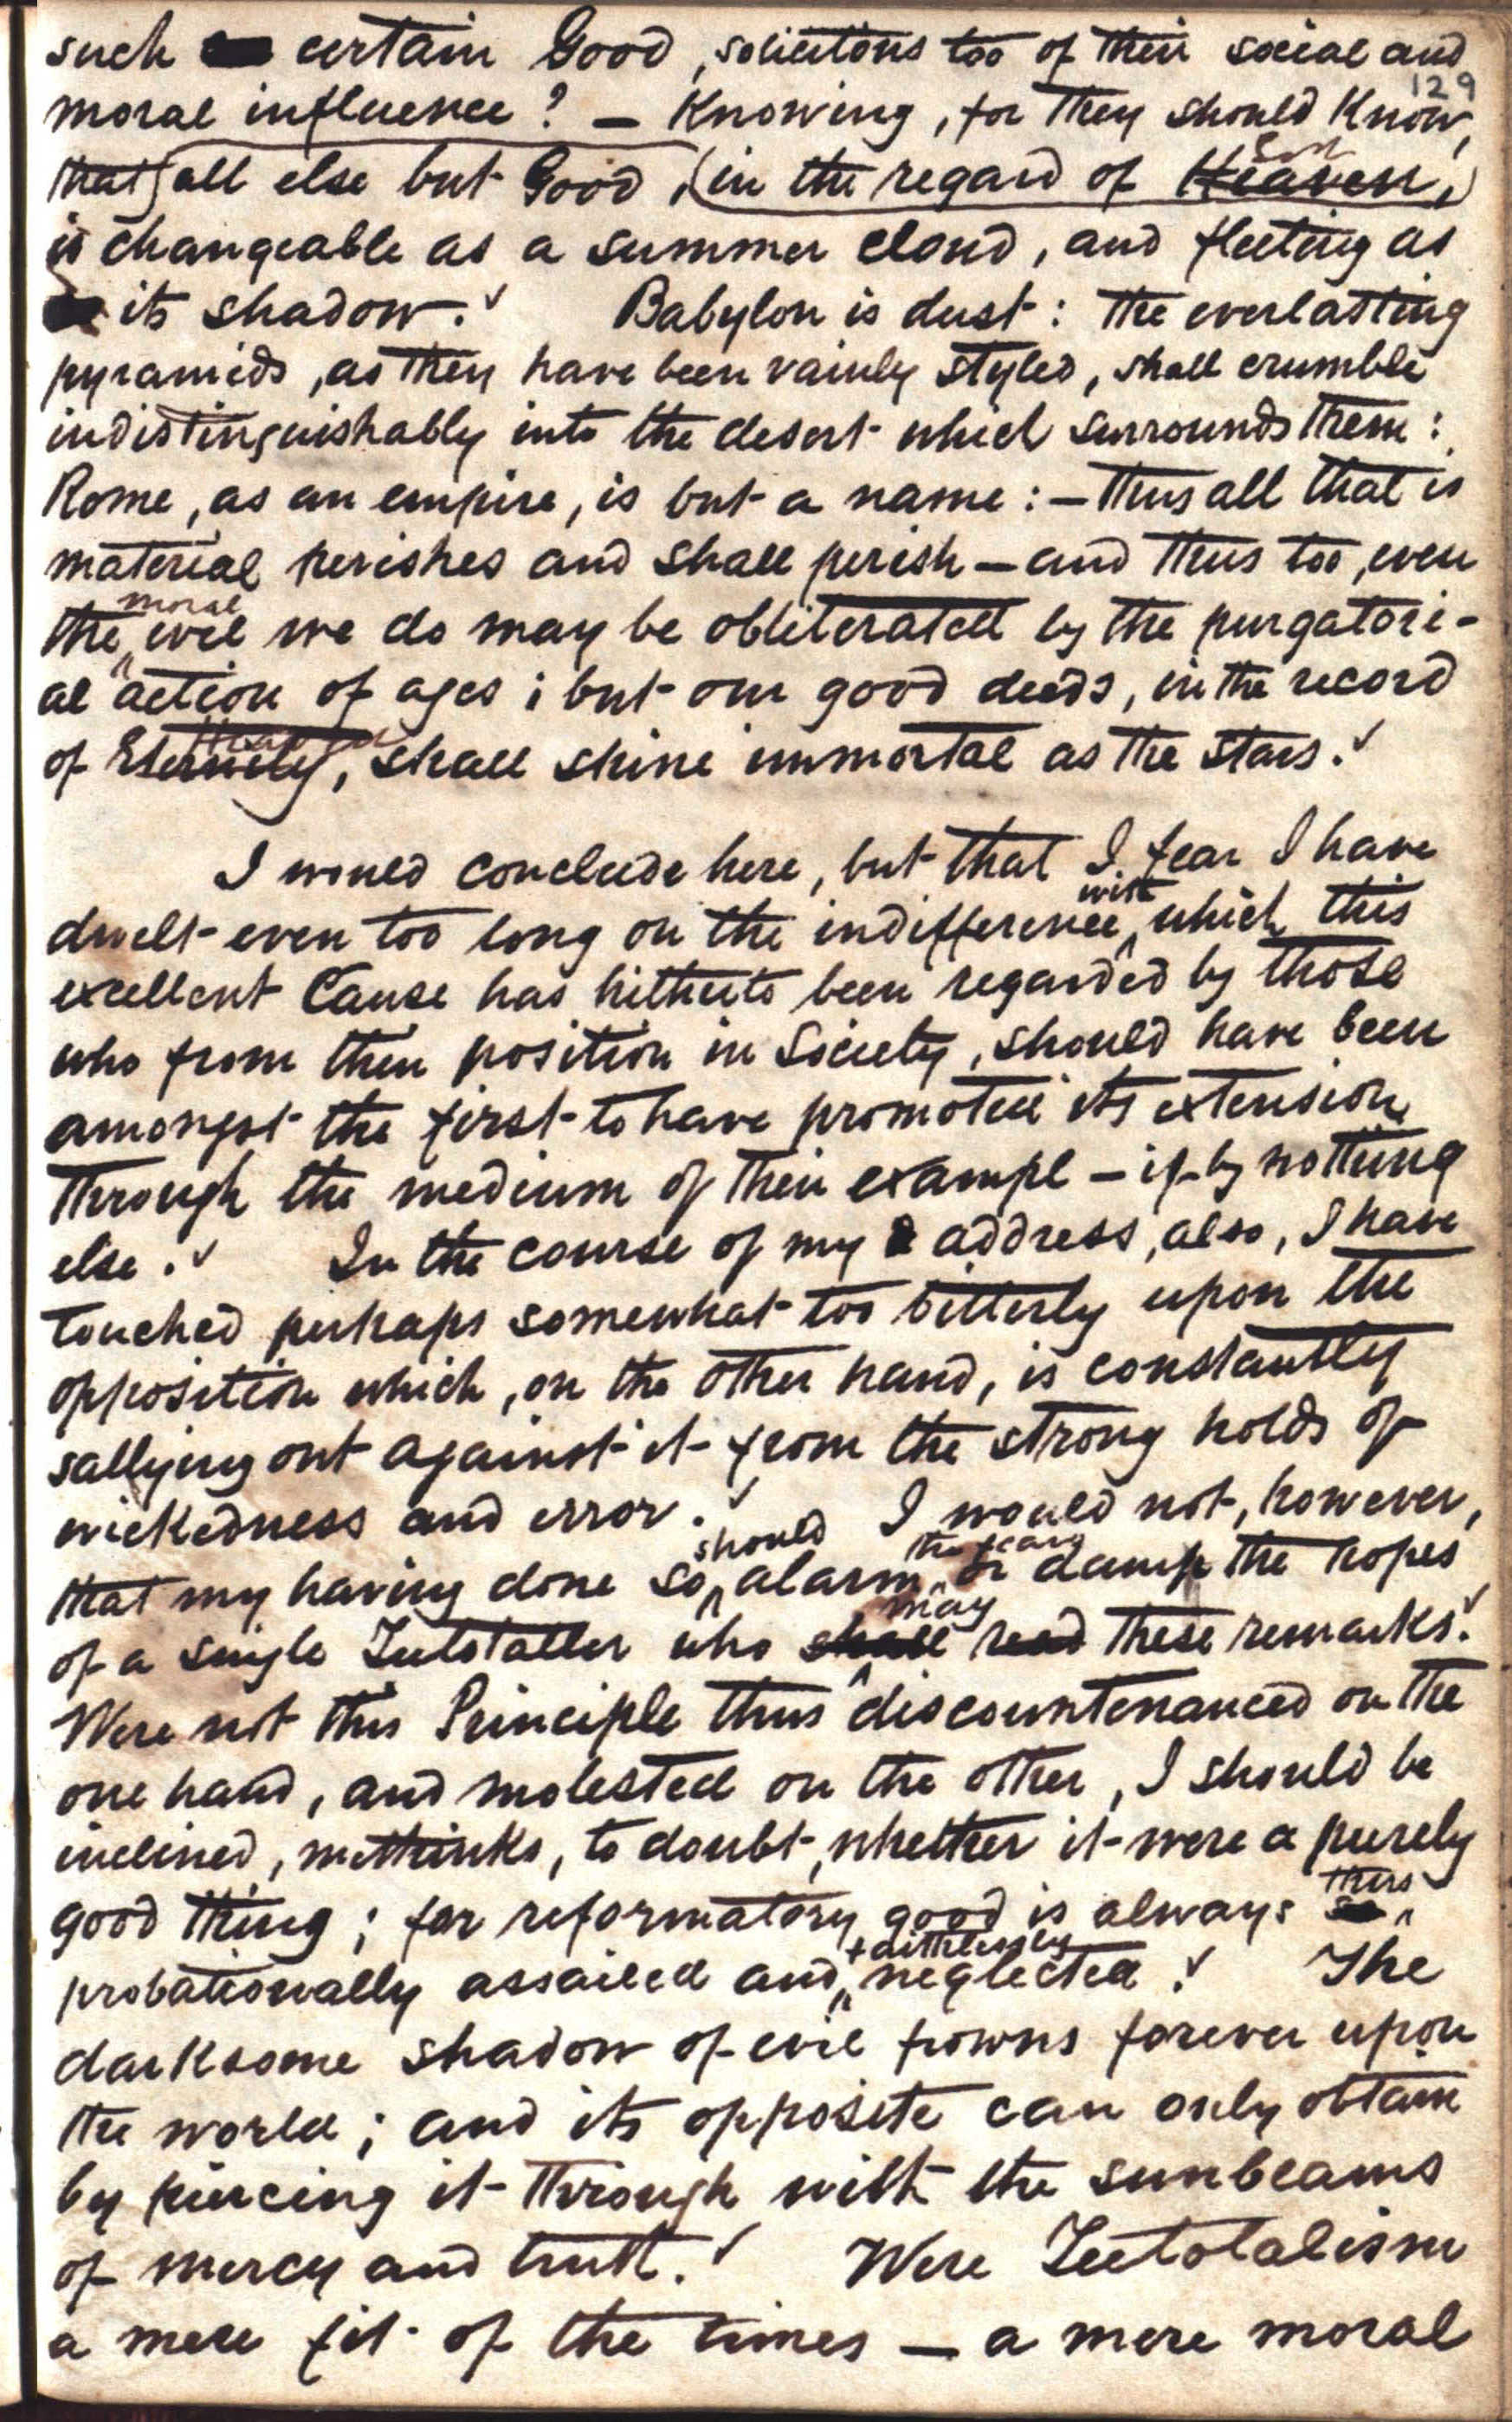 such certain Good, solicitous too of their social and
129
moral influence? — Knowing, for they should Know,
that all else but Good, (in the regard of Heaven,)
is changeable as a summer cloud, and fleeting as
its shadow. Babylon is dust: the everlasting
pyramids, as they have been vainly styled, shall crumble
indistinguishably into the desert which surrounds them:
Rome, as an empire, is but a name: — thus all that is
material perishes and shall perish — and thus too, even
the moral evil we do may be obliterated by the purgatori-
al action of ages; but our good deeds, in the record
of Eternity, shall shine immortal as the stars.
I would conclude here, but that I fear I have
dwelt even too long on the indifference with which this
excellent Cause has hitherto been regarded by those
who from their position in Society, should have been
amongst the first to have promoted its extension
through the medium of their exampl — if by nothing
else. In the course of my address, also, I have
touched perhaps somewhat too bitterly upon the
opposition which, on the other hand, is constantly
sallying out against it from the strong holds of
wickedness and error. I would not, however,
that my having done so, should alarm the fears or damp the hopes
of a single Teetotaller who shall may read these remarks.
Were not this Principle thus discountenanced on the
one hand, and molested on the other, I should be
inclined, methinks, to doubt, whether it were a purely
good thing; for reformatory good is always so thus
probationally assailed and neglected. The
darksome shadow of evil frowns forever upon
the world; and its opposite can only obtain
by piercing it through with the sunbeams
of mercy and truth. Were Teetotalism
a mere fit of the times — a mere moral